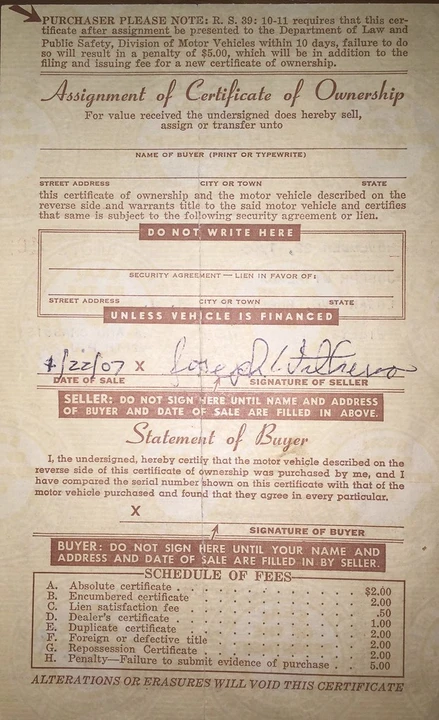 PURCHASER PLEASE NOTE: R. S. 39: 10-11 requires that this cer-
tificate after assignment be presented to the Department of Law and
Public Safety, Division of Motor Vehicles within 10 days, failure to do
so will result in a penalty of $5.00, which will be in addition to the
filing and issuing fee for a new certificate of ownership.
Assignment of Certificate of Ownership
For value received the undersigned does hereby sell,
assign or transfer unto
NAME OF BUYER (PRINT OR TYPEWRITE)
STREET ADDRESS CITY OR TOWN STATE
this certificate of ownership and the motor vehicle described on the
reverse side and warrants title to the said motor vehicle and certifies
that same is subject to the following security agreement or lien.
DO NOT WRITE HERE
SECURITY AGREEMENT — LIEN IN FAVOR OF:
STREET ADDRESS CITY OR TOWN STATE
UNLESS VEHICLE IS FINANCED
/22/07 X Joseph
DATE OF SALE SIGNATURE OF SELLER
SELLER: DO NOT SIGN HERE UNTIL NAME AND ADDRESS
OF BUYER AND DATE OF SALE ARE FILLED IN ABOVE.
Statement of Buyer
I, the undersigned, hereby certify that the motor vehicle described on the
reverse side of this certificate of ownership was purchased by me, and I
have compared the serial number shown on this certificate with that of the
motor vehicle purchased and found that they agree in every particular.
X
SIGNATURE OF BUYER
BUYER: DO NOT SIGN HERE UNTIL YOUR NAME AND
ADDRESS AND DATE OF SALE ARE FILLED IN BY SELLER.
SCHEDULE OF FEES
A. Absolute certificate . . . . $2.00
B. Encumbered certificate . . . . 2.00
C. Lien satisfaction fee . . . . .50
D. Dealer's certificate . . . . 1.00
E. Duplicate certificate . . . . 2.00
F. Foreign or defective title . . . . 2.00
G. Repossession Certificate . . . . 2.00
H. Penalty—Failure to submit evidence of purchase . . 5.00
ALTERATIONS OR ERASURES WILL VOID THIS CERTIFICATE